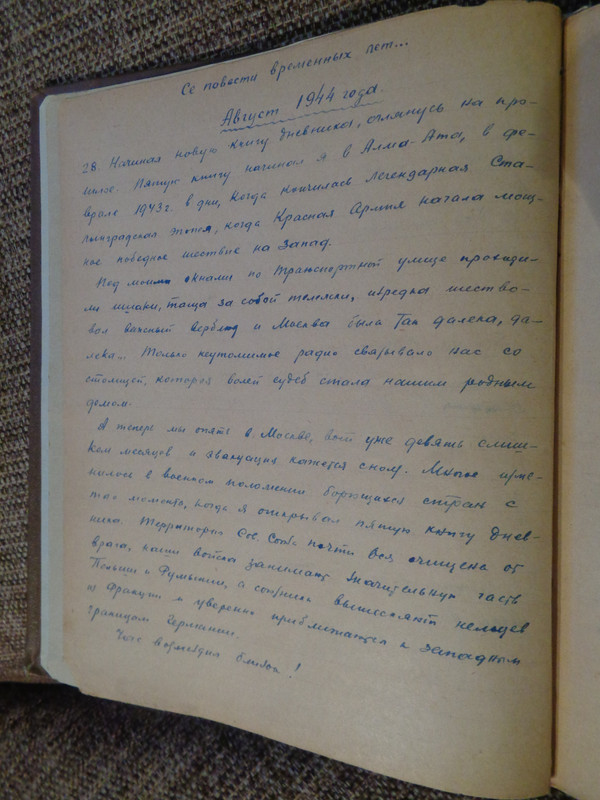 Се повести временных лет...
Август 1944 года.
28. Начиная новую книгу дневника, оглянусь на про-
шлое. Пятую книгу начинал я в Алма-Ата, в фе-
врале 1943 г. в дни, когда кончилась легендарная Ста-
линградская эпопея, когда Красная Армия начала мощ-
ное победное шествие на Запад.
Под моими окнами по Транспортной улице проходи-
ли ишаки, таща за собой тележки, изредка шество-
вал важный верблюд и Москва была так далека, да-
лека... Только неутомимое радио связывало нас со
столицей, которая волей судеб стала нашим родным
домом.
А теперь мы опять в Москве, вот уже девять слиш-
ком месяцев и эвакуация кажется сном. Многое изме-
нилось в военном положении борющихся стран с
того момента, когда я открывал пятую книгу днев-
ника. Территория Сов. Союза почти вся очищена от
врага, наши войска занимают значительную часть
Польши и Румынии, а союзники вышибают немцев
из Франции и уверенно приближаются к западным
границам Германии.
Час возмездия близок!